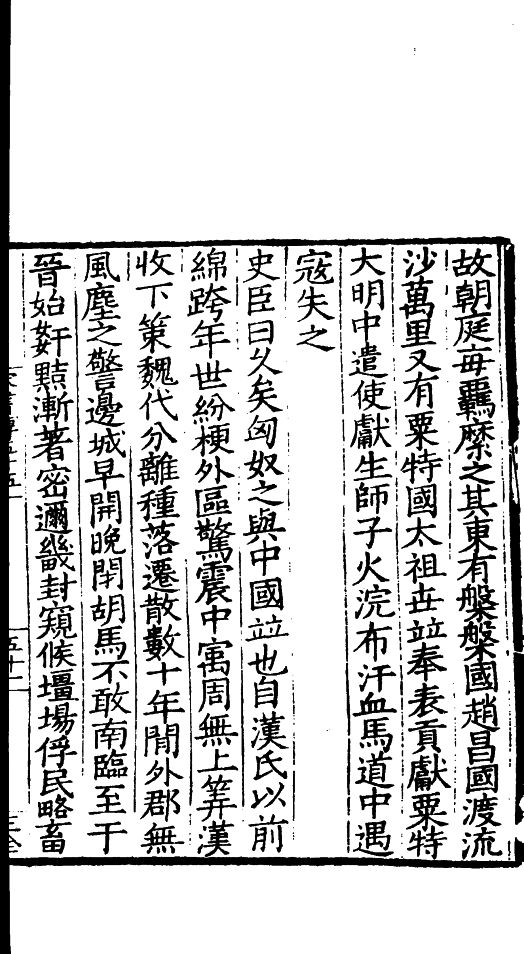 故朝庭每羈縻之其東有槃槃國趙昌國渡流
沙萬里又有粟特國太祖世竝奉表貢獻粟特
大明中遣使獻生師子火浣布汗血馬道中遇
寇失之
史臣曰乆矣匈奴之與中國竝也自漢氏以前
綿跨年世紛梗外區驚震中㝢周無上筭漢
收下策魏代分離種落遷散數十年閒外郡無
風塵之警邊城早開晚閉胡馬不敢南臨至于
晉始姧黠漸著密邇畿封窺候壃場俘民略畜